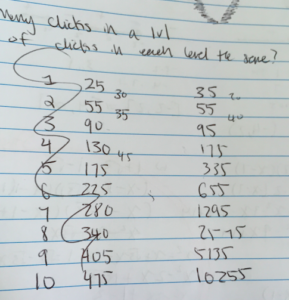 many clicks in a lvl
of clicks in each level the same?
1 25 30 35 20
2 55 35 55 40
3 90 95
4 130 45 175
5 175 335
6 225 655
7 280 1295
8 340 2575
9 405 5135
10 475 10255